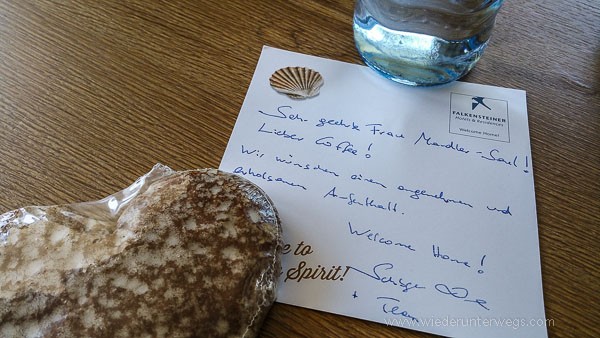 FALKENSTEINER
Hotels & Residences
Welcome Home!
Sehr geehrte Frau Mandler-Saul!
Lieber Coffee!
Wir wünschen einen angenehmen und
erholsamen Aufenthalt.
Welcome Home!
e to
Spirit!
+ Team
www.wiederunterwegs.com